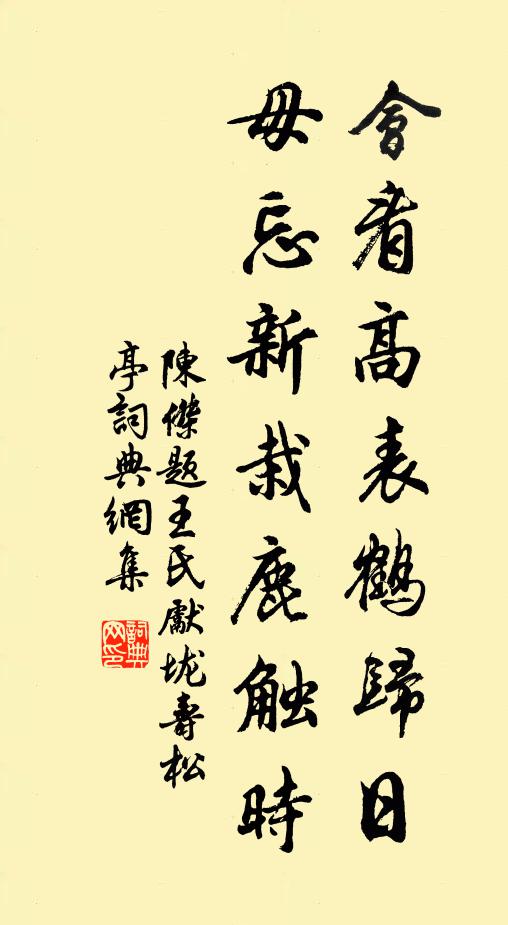 會看高表鶴歸日
毋忘新栽鹿觸時
陳傑題王氏獻垅壽松
亭詞典網集
詞典
网印